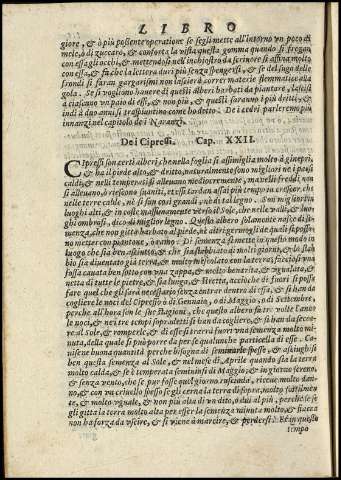 LIBRO
giore, & ò più possente operatione se segli mette all'intorno un poco di
mele, ò di zuccaro, & conforta la vista questa gomma quando si fregan
con essa gli occhi, & mettendosi nell'inchiostro da scrivere
con essa, & fa che la lettera duri più senza spengersi, & se del sugo delle
frondi si faran gargarismi non lascierà correr materie flemmatice alla
gola. Se si vogliono havere di questi alberi barbati da piantare, lassisi
à ciascuno un paio di essi, & non più, & questi saranno i più dritti, &
indi à duo anni si traspiantino come ho detto. De i cedri parleremo più
innanzi nel capitolo de i Naranzi.
De i Cipressi. Cap. XXII.
CIpressi son certi alberi, che nella foglia si assimiglia molto à ginepri,
& ha il pirde alto, & dritto, naturalmente sono migliori ne i paesi
caldi, & nelli temperati si alleuano mediocremente, ma nelli freddi, non
si alleuano, ò riescono suaniti, et essi tardan assai più tempo in crescer, che
nelle terre calde, nè si fan così grandi, nè di tal legno. Son migliori in
luoghi alti, & in coste massimamente verso il Sole, che nelle valli, & luo
ghi ombrosi, dico di miglior legno. Questo albero solamente nasce di se-
menza, che non gitta barbato al piede, nè altri germogli de quali si posso-
no metter con piantone, ò ramo: Di semenza si mette in questo modo in
luogo che sia ben asciutto, & che sia stabbiato di molti giorni, & lo stab-
bio sia diventato già terra, & molto mescolato con la terra; facciasi una
fossa cavata ben sotto con una zappa, & molto ben trita, & uguulata, &
netta di tutte le pietre, & sia lunga, & stretta, accioche di fuori si posse
far quel che gli sarà necessario senza entrar dentro di essa, & si han da
cogliere le noci del Cipresso ò di Gennaio, ò di Maggio, ò di Settembre,
perche all'hora son le sue stagioni, che questo albero fa tre volte l'anno
le noci, & ne i tre tempi sopradetti si han da cogliere, & si han da secca-
re al Sole, & romperle, & di essi si trarrà fuori una semenza molto mi-
nuta, della quale si più porre da per se qualunque particella di essa. Ca-
visene buona quantità perche bisogna di seminarle spesse, & asciughisi
ben questa semenza al Sole, & nel mese di Aprile quando sia la terra
molto calda, & s'è temperata seminisi di Maggio, & in giorno sereno,
& senza vento, che se pur fosse quel giorno rasciende, riesce molto dan-
no, & con un crivello spesso segli cerna la terra di sopra, molto sottilmen-
te, & molto uguale, & non più alta di un dito, ò dui al più, perche se se
gli gitta la terra molto alta per esser la semenza minuta molto, & fiacca
non ha forza da uscire, & si viene à marcire, & perdersi: Et in questo
tempo